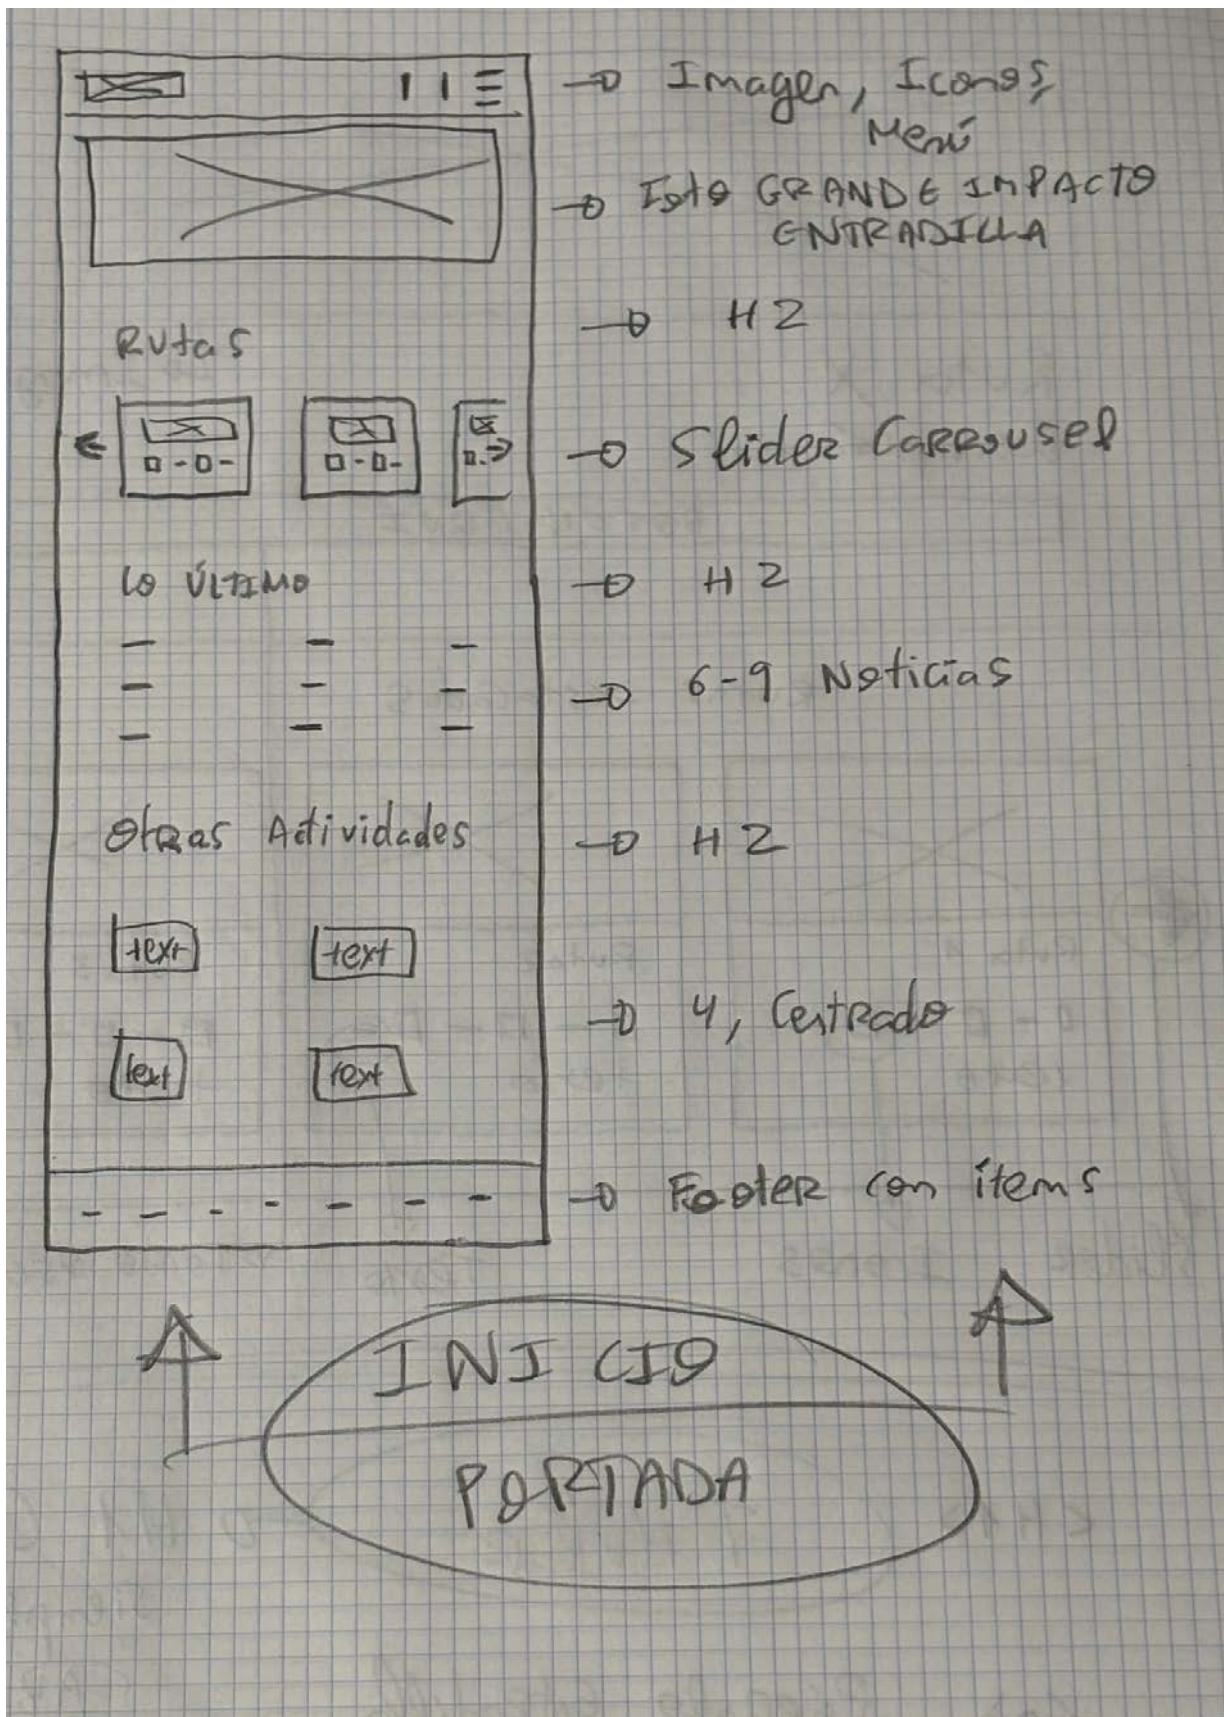 Imagen, Iconos,
Menú
Foto GRANDE IMPACTO
ENTRADILLA
H2
Rutas
Slider Carrousel
Lo ÚLTIMO
H2
6-9 Noticias
Otras Actividades
H2
text text
4, Centrado
text text
Footer con ítems
INICIO
PORTADA